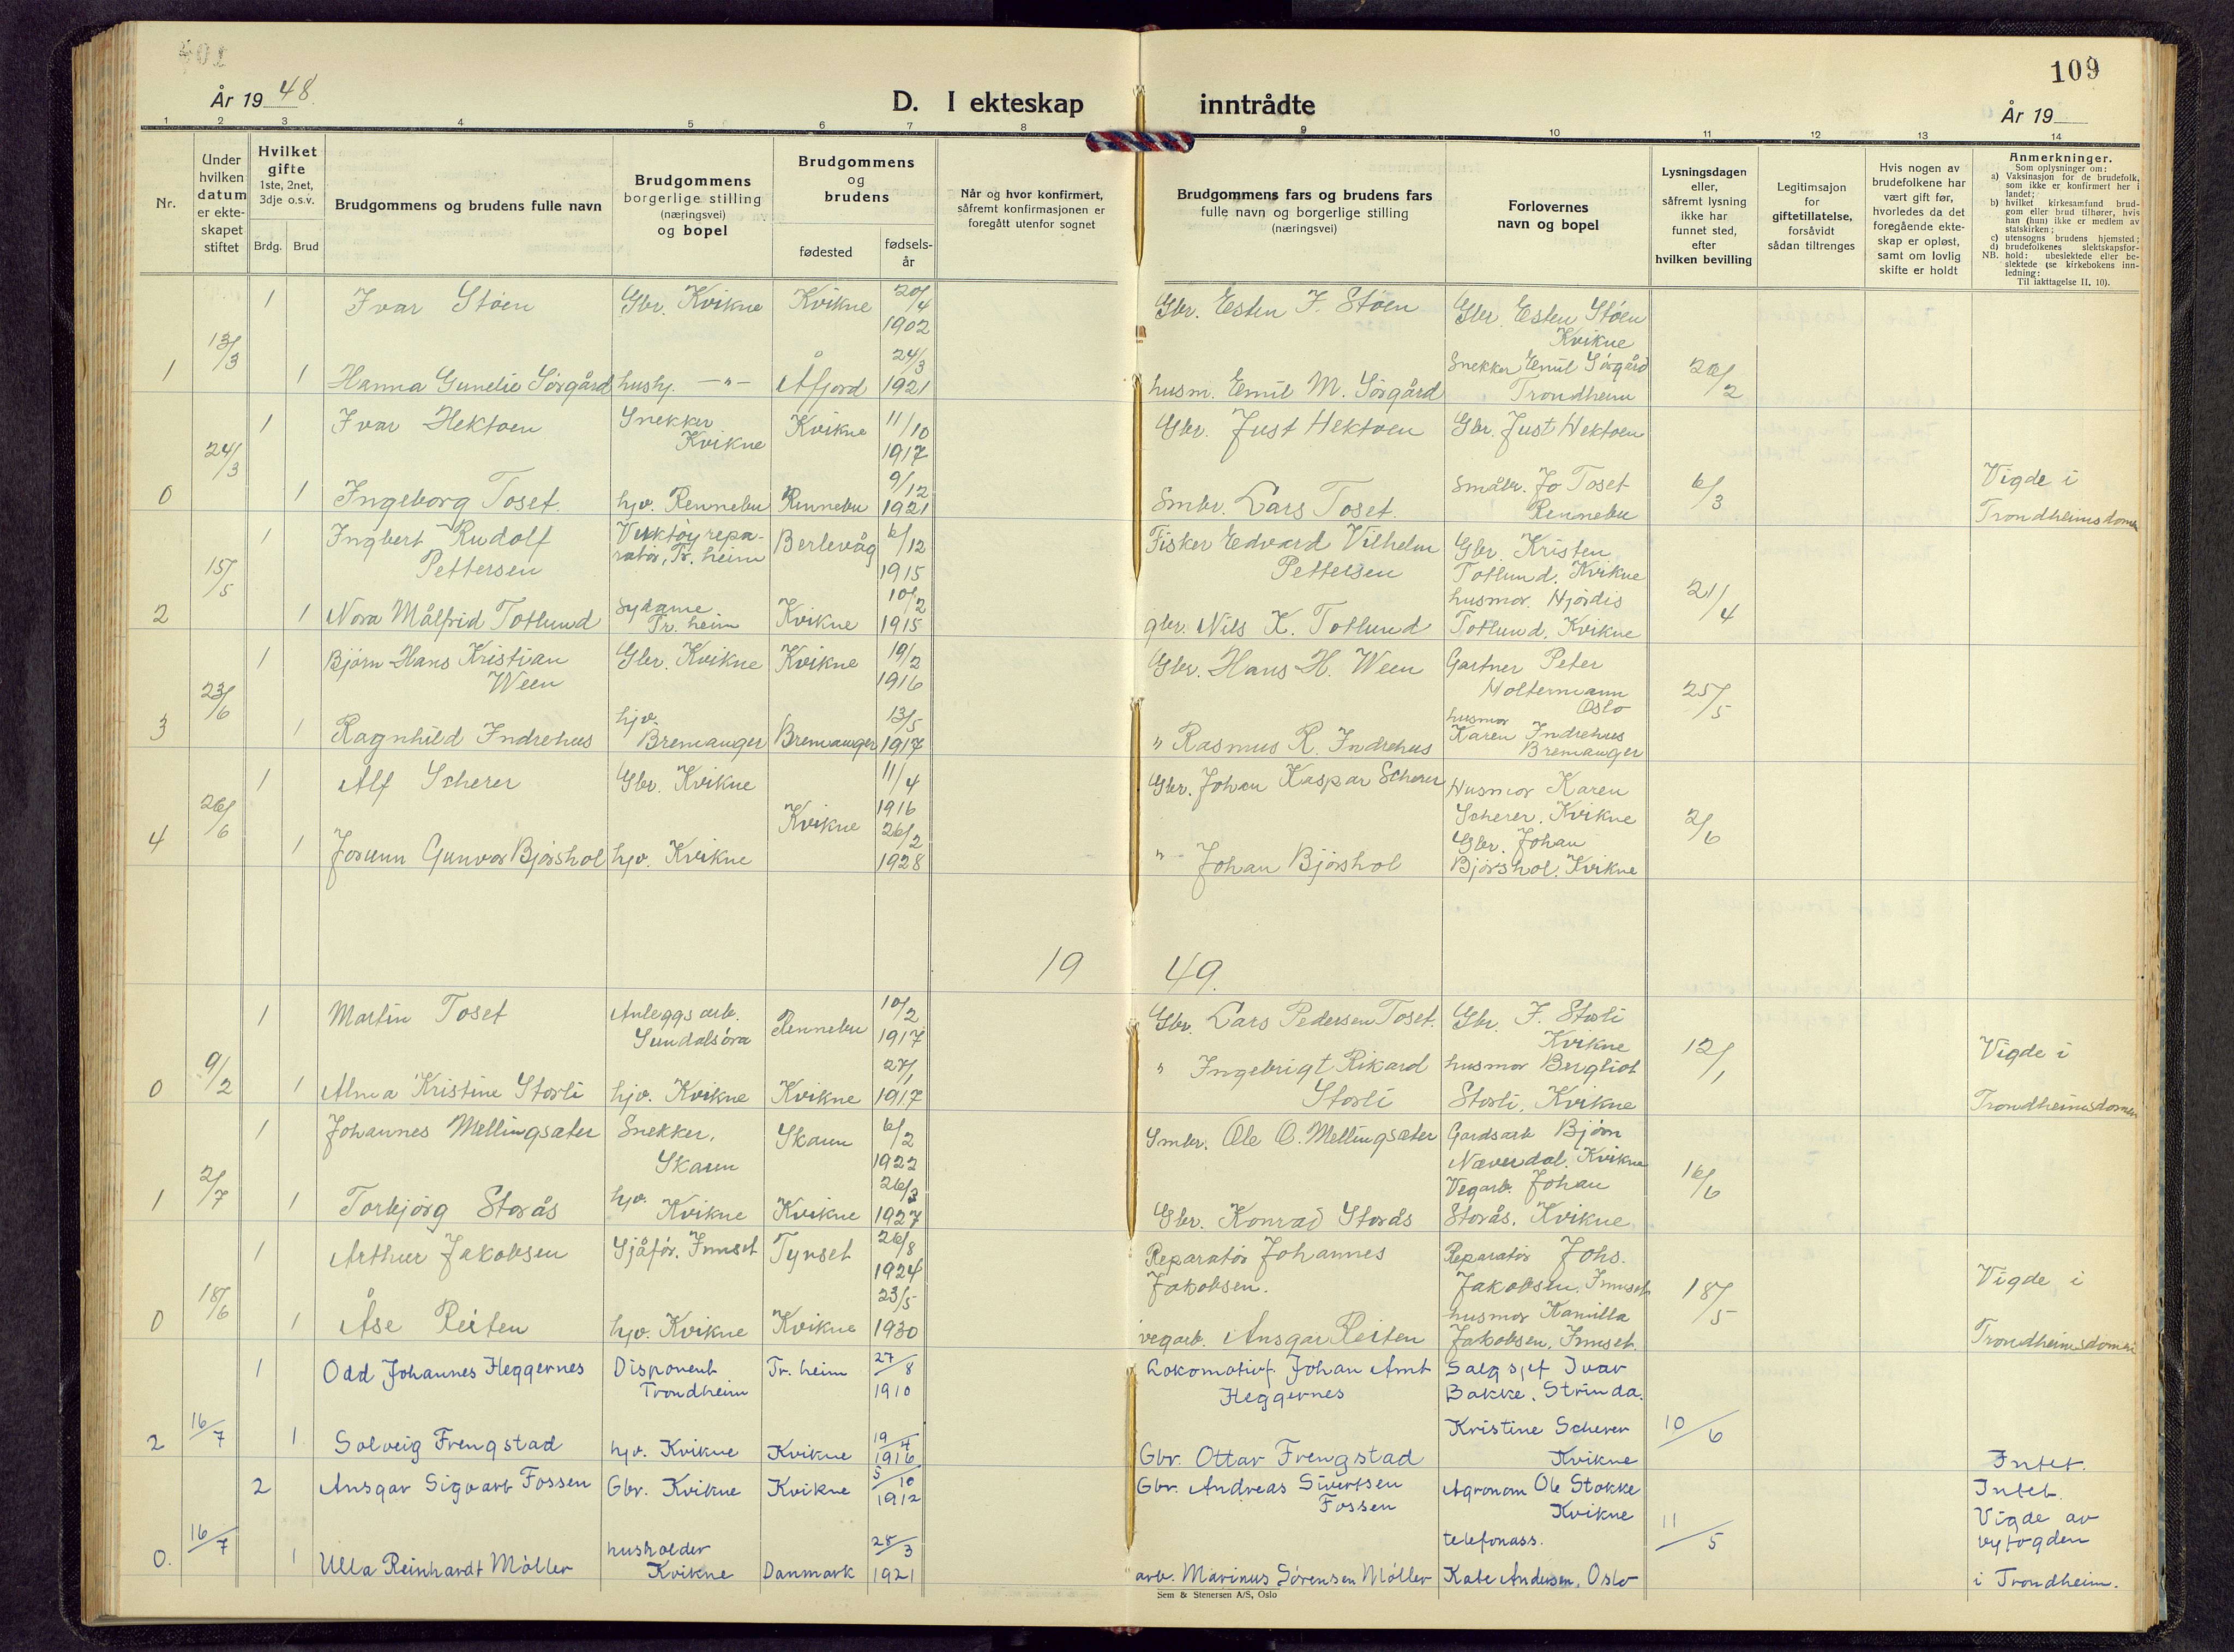 109
År 19 48.
D. I ekteskap inntrådte
År 19
1 2 3 4 5 6 7 8 9 10 11 12 13 14
Nr.
Under hvilken datum er ekte-skapet stiftet
Hvilket gifte
1ste, 2net, 3dje o.s.v.
Brdg. Brud
Brudgommens og brudens fulle navn
Brudgommens borgerlige stilling (næringsvei) og bopel
Brudgommens og brudens
fødested
fødsels-år
Når og hvor konfirmert, såfremt konfirmasjonen er foregått utenfor sognet
Brudgommens fars og brudens fars fulle navn og borgerlige stilling (næringsvei)
Forlovernes navn og bopel
Lysningsdagen eller, såfremt lysning ikke har funnet sted, efter hvilken bevilling
Legitimsajon for giftetillatelse, forsåvidt sådan tiltrenges
Hvis nogen av brudefolkene har vært gift før, hvorledes da det foregående ekte-skap er opløst, samt om lovlig skifte er holdt
Anmerkninger.
Som oplysninger om:
a) Vaksinasjon for de brudefolk, som ikke er konfirmert her i landet;
b) hvilket kirkesamfund brud-gom eller brud tilhører, hvis han (hun) ikke er medlem av statskirken;
c) utensogns brudens hjemsted;
d) brudefolkenes slektskapsfor-hold: ubeslektede eller be-slektede (se kirkebokens inn-ledning:
NB.
Til iakttagelse II, 10).
1 Ivar Støen Gbr. Kvikne Kvikne 20/4 1902 Gbr. Esten I. Støen Gbr. Esten Støen Kvikne
1 13/3 1 Hanna Gunelie Sørgård hushj. —"— Åfjord 24/3 1921 husm. Emil M. Sørgård Snekker Emil Sørgård Trondheim 20/2
1 Ivar Hektoen Snekker Kvikne Kvikne 11/10 1917 Gbr. Just Hektoen Gbr. Just Hektoen
0 24/3 1 Ingeborg Toset. hjv. Rennebu Rennebu 9/12 1921 Smbr. Lars Toset. Småbr. Jo Toset Rennebu 6/3 Vigde i Trondheimsdomen
1 Ingbert Rudolf Pettersen Verktøyrepa-ratør, Tr. heim Berlevåg 6/12 1915 Fisker Edvard Vilhelm Pettersen Gbr. Kristen Totlund. Kvikne
2 15/5 1 Nora Målfrid Totlund Sydame Tr. heim Kvikne 10/2 1915 gbr. Nils K. Totlund husmor. Hjørdis Totlund, Kvikne 21/4
1 Bjørn Hans Kristian Ween Gbr. Kvikne Kvikne 19/2 1916 Gbr. Hans H. Ween Gartner Peter Holtermann Oslo
3 23/6 1 Ragnhild Indrehus hjv. Bremanger Bremanger 13/5 1917 " Rasmus R. Indrehus husmor Karen Indrehus Bremanger 25/5
1 Alf Scherer Gbr. Kvikne 11/4 1916 Gbr. Johan Kaspar Scherer Husmor Karen Scherer. Kvikne
4 26/6 1 Jorunn Gunvor Bjørshol hjv. Kvikne Kvikne 26/2 1928 " Johan Bjørshol Gbr. Johan Bjørshol. Kvikne 2/6
19 49.
1 Martin Toset Anleggsarb. Sundalsøra Rennebu 10/2 1917 Gbr. Lars Pedersen Toset. Gbr. I. Storli Kvikne
0 9/2 1 Alma Kristine Storli hjv. Kvikne Kvikne 27/1 1917 " Ingebrigt Rikard Storli husmor Bergliot Storli, Kvikne 12/1 Vigde i Trondheimsdomen
1 Johannes Mellingsæter Snekker. Skaun Skaun 6/2 1922 Smbr. Ole O. Mellingsæter Gardsarb Bjørn Næverdal. Kvikne
1 2/7 1 Torbjørg Storås hjv. Kvikne Kvikne 26/3 1927 Gbr. Konrad Storås Vegarb. Johan Storås. Kvikne 16/6
1 Arthur Jakobsen Sjåfør. Innset Tynset 26/8 1924 Reparatør Johannes Jakobsen. Reparatør Johs. Jakobsen, Innset
0 18/6 1 Åse Reiten hjv. Kvikne Kvikne 23/5 1930 vegarb. Ansgar Reiten husmor Kamilla Jakobsen, Innset. 18/5 Vigde i Trondheimsdomen
1 Odd Johannes Heggernes Disponent Trondheim Tr. heim 27/8 1910 Lokomotivf. Johan Arnt Heggernes Salgsjef Ivar Bakke. Strinda.
2 16/7 1 Solveig Frengstad hjv. Kvikne Kvikne 19/4 1916 Gbr. Ottar Frengstad Kristine Scherer Kvikne 10/6 Intet.
2 Ansgar Sigvart Fossen Gbr. Kvikne Kvikne 5/10 1912 Gbr. Andreas Sivertsen Fossen Agronom Ole Stokke Kvikne Intet.
0. 16/7 1 Ulla Reinhardt Møller husholder Kvikne Danmark 28/3 1921 arb. Marinus Sørensen Møller telefonass. Kate Andersen, Oslo 11/5 Vigde av byfogden i Trondheim.
Sem & Stenersen A/S, Oslo